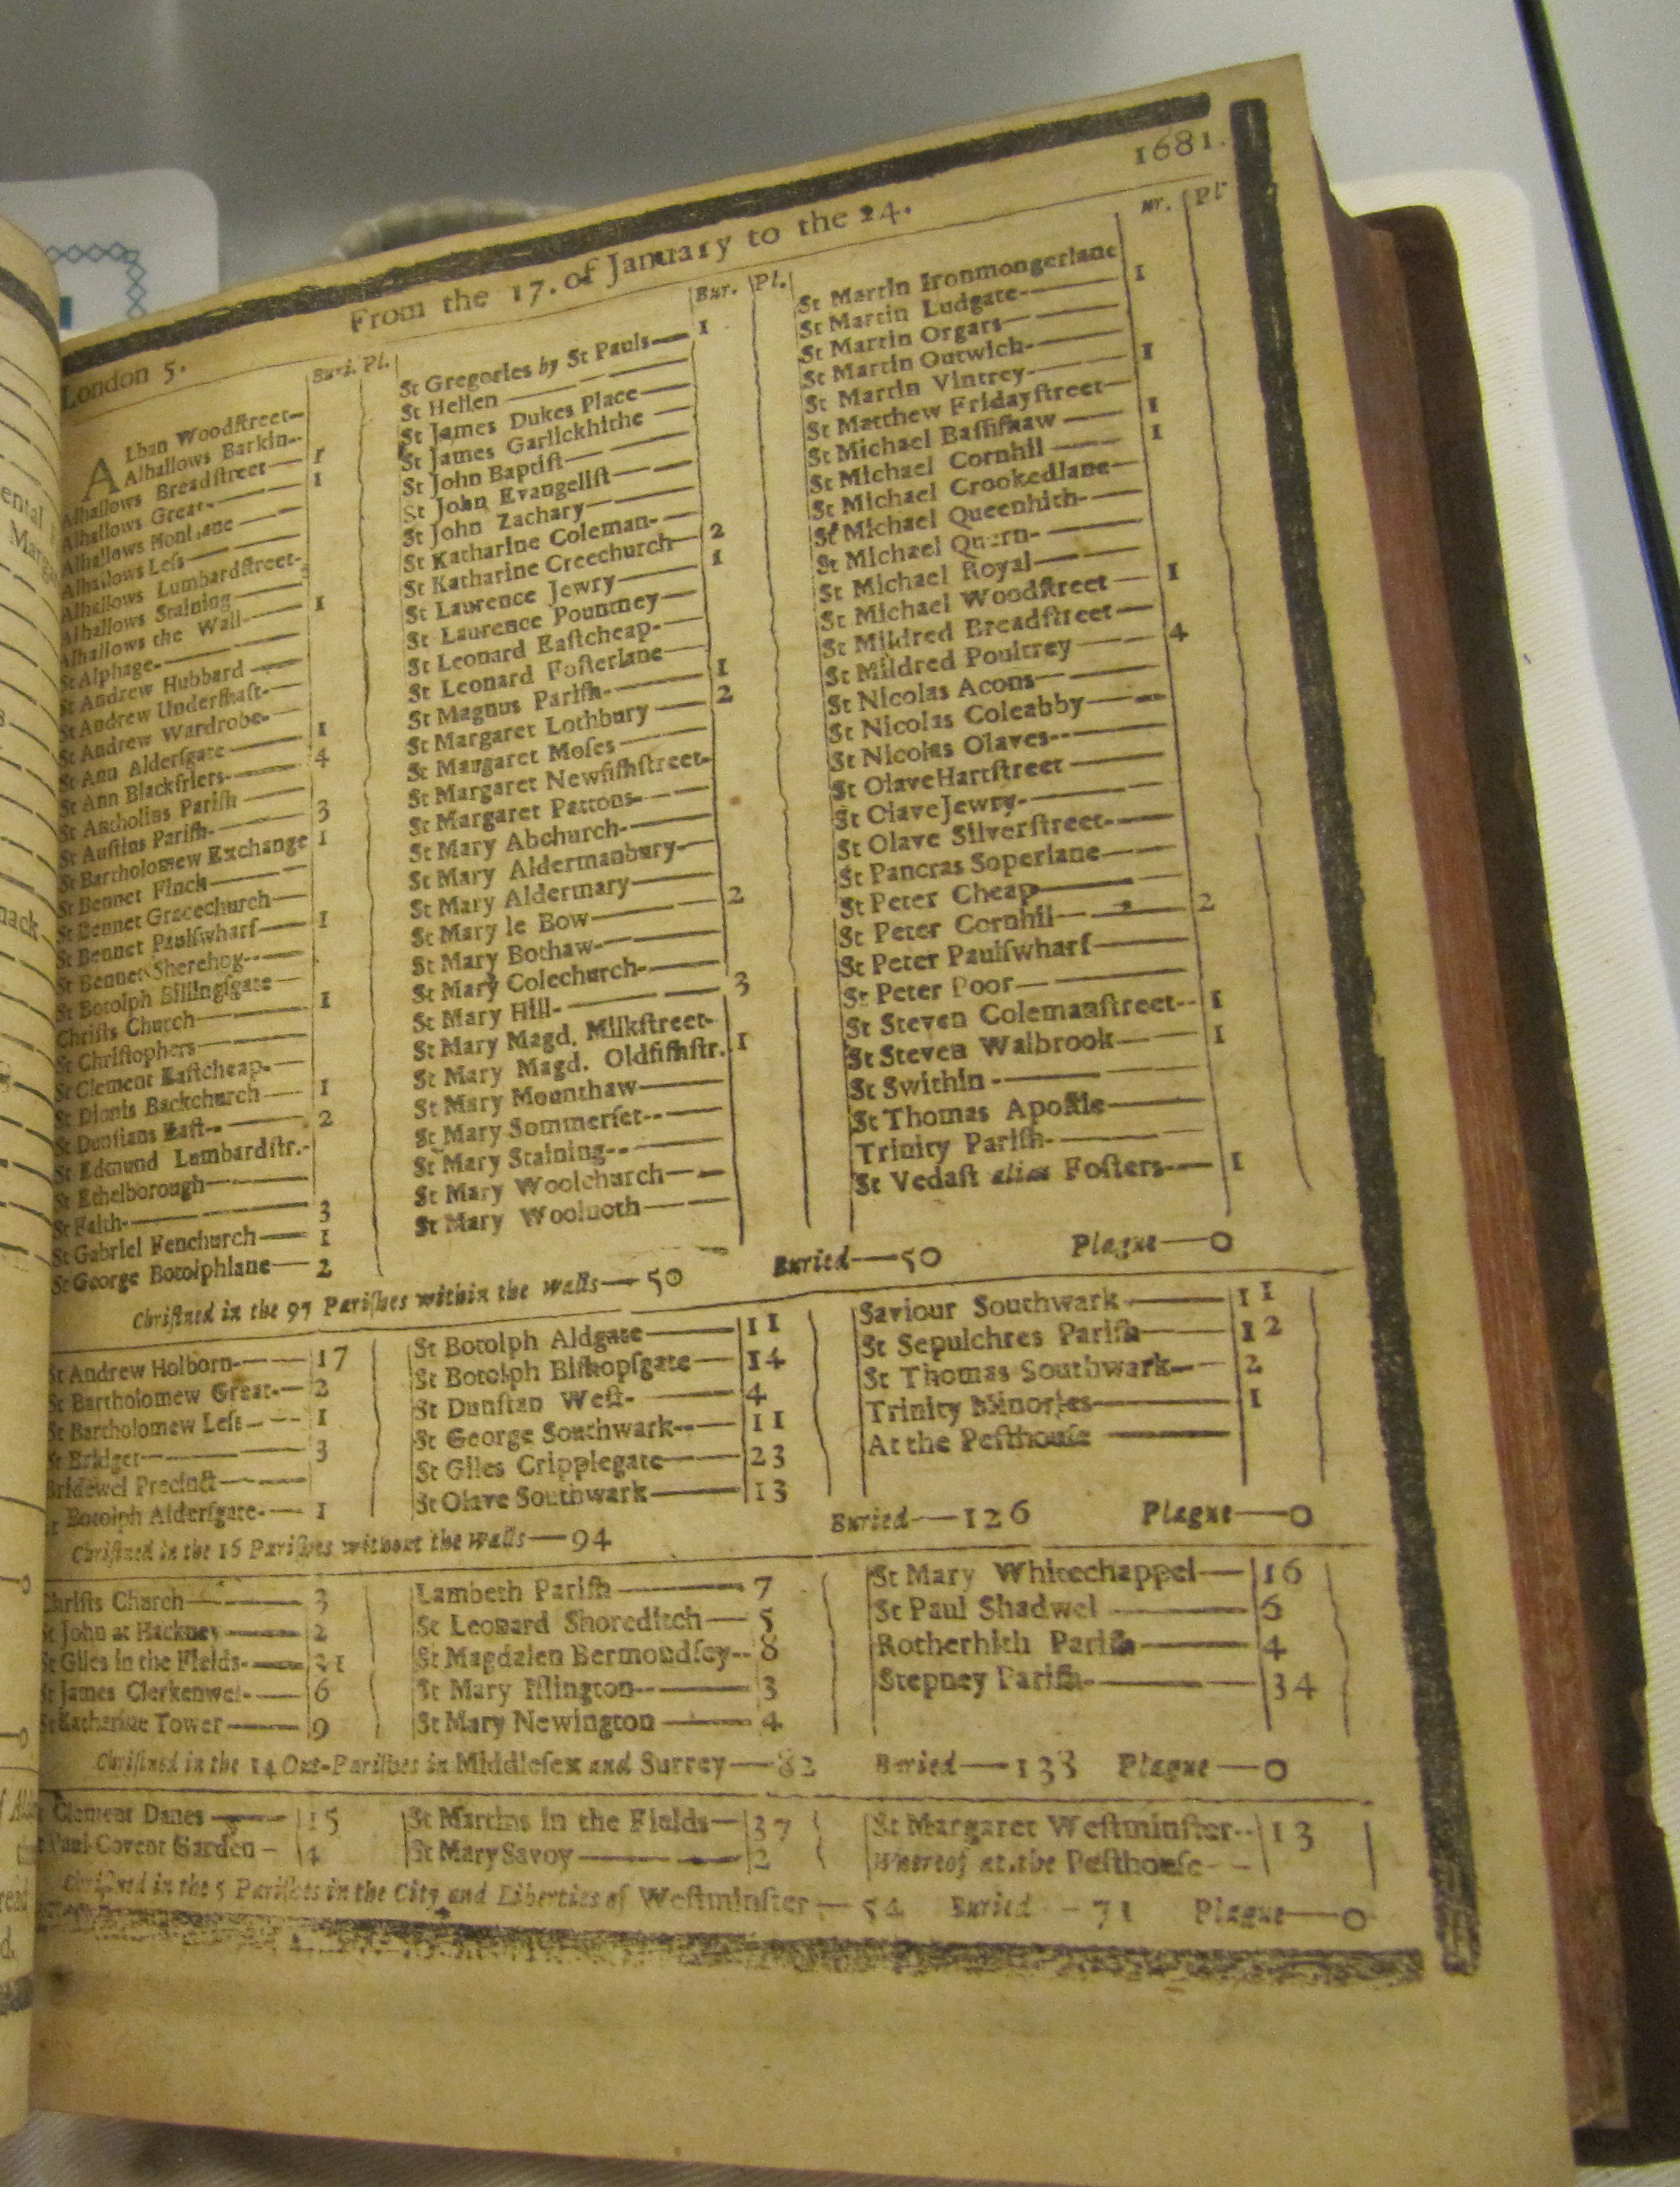 1681.
From the 17. of January to the 24.
London 5.
Buri. Pl.
ALban Woodſtreet
Alhallows Barkin
Alhallows Breadſtreet 1
Alhallows Great 1
Alhallows
Alhallows Leſs
Alhallows Lumbardſtreet
Alhallows Staining
Alhallows the Wall 1
St Alphage
St Andrew Hubbard
St Andrew Underſhaft
St Andrew Wardrobe
St Ann Alderſgate 1
St Ann Blackfriers 4
St Antholins Pariſh
St Auſtins Pariſh 3
St Bartholomew Exchange 1
St Bennet Finck
St Bennet Gracechurch
St Bennet Paulſwharf 1
St Bennet Sherehog
St Botolph Billingſgate
Chriſts Church 1
St Chriſtophers
St Clement Eaſtcheap
St Dionis Backchurch 1
St Dunſtans Eaſt 2
St Edmund Lumbardſtr.
St Ethelborough
St Faith 3
St Gabriel Fenchurch 1
St George Botolphlane 2
Bur. Pl.
St Gregories by St Pauls 1
St Hellen
St James Dukes Place
St James Garlickhithe
St John Baptiſt
St John Evangeliſt
St John Zachary
St Katharine Coleman
St Katharine Creechurch 2
St Laurence Jewry 1
St Laurence Pountney
St Leonard Eaſtcheap
St Leonard Foſterlane
St Magnus Pariſh 1
St Margaret Lothbury 2
St Margaret Moſes
St Margaret Newfiſhſtreet
St Margaret Pattons
St Mary Abchurch
St Mary Aldermanbury
St Mary Aldermary
St Mary le Bow 2
St Mary Bothaw
St Mary Colechurch
St Mary Hill 3
St Mary Magd. Milkſtreet
St Mary Magd. Oldfiſhſtr. 1
St Mary Mounthaw
St Mary Sommerſet
St Mary Staining
St Mary Woolchurch
St Mary Woolnoth
ur. Pl
St Martin Ironmongerlane
St Martin Ludgate 1
St Martin Orgars
St Martin Outwich
St Martin Vintrey 1
St Matthew Fridayſtreet
St Michael Baſſiſhaw 1
St Michael Cornhil 1
St Michael Crookedlane
St Michael Queenhith
St Michael Quern
St Michael Royal
St Michael Woodſtreet 1
St Mildred Breadſtreet
St Mildred Poultrey 4
St Nicolas Acons
St Nicolas Coleabby
St Nicolas Olaves
St Olave Hartſtreet
St Olave Jewry
St Olave Silverſtreet
St Pancras Soperlane
St Peter Cheap
St Peter Cornhil 2
St Peter Paulſwharf
St Peter Poor
St Steven Colemanſtreet 1
St Steven Walbrook 1
St Swithin
St Thomas Apoſtle
Trinity Pariſh
St Vedaſt alias Foſters 1
Chriſtned in the 97 Pariſhes within the walls—50 Buried—50 Plague—0
St Andrew Holborn 17
St Bartholomew Great 2
St Bartholomew Leſs 1
St Bridget 3
Bridewel Precinct
St Botolph Alderſgate 1
St Botolph Aldgate 11
St Botolph Biſhopſgate 14
St Dunſtan Weſt 4
St George Southwark 11
St Giles Cripplegate 23
St Olave Southwark 13
Saviour Southwark 11
St Sepulchres Pariſh 12
St Thomas Southwark 2
Trinity Minories 1
At the Peſthouſe
Chriſtned in the 16 Pariſhes without the walls—94 Buried—126 Plague—0
Chriſts Church 3
St John at Hackney 2
St Giles in the Fields 31
St James Clerkenwel 6
St Katharine Tower 9
Lambeth Pariſh 7
St Leonard Shoreditch 5
St Magdalen Bermondſey 8
St Mary Iſlington 3
St Mary Newington 4
St Mary Whitechappel 16
St Paul Shadwel 6
Rotherhith Pariſh 4
Stepney Pariſh 34
Chriſtned in the 14 Out-Pariſhes in Middleſex and Surrey—82 Buried—138 Plague—0
Clement Danes 15
Paul Covent Garden 4
St Martins in the Fields 37
St Mary Savoy 2
St Margaret Weſtminſter 13
Whereof at the Peſthouſe
Chriſtned in the 5 Pariſhes in the City and Liberties of Weſtminſter—54 Buried—71 Plague—0